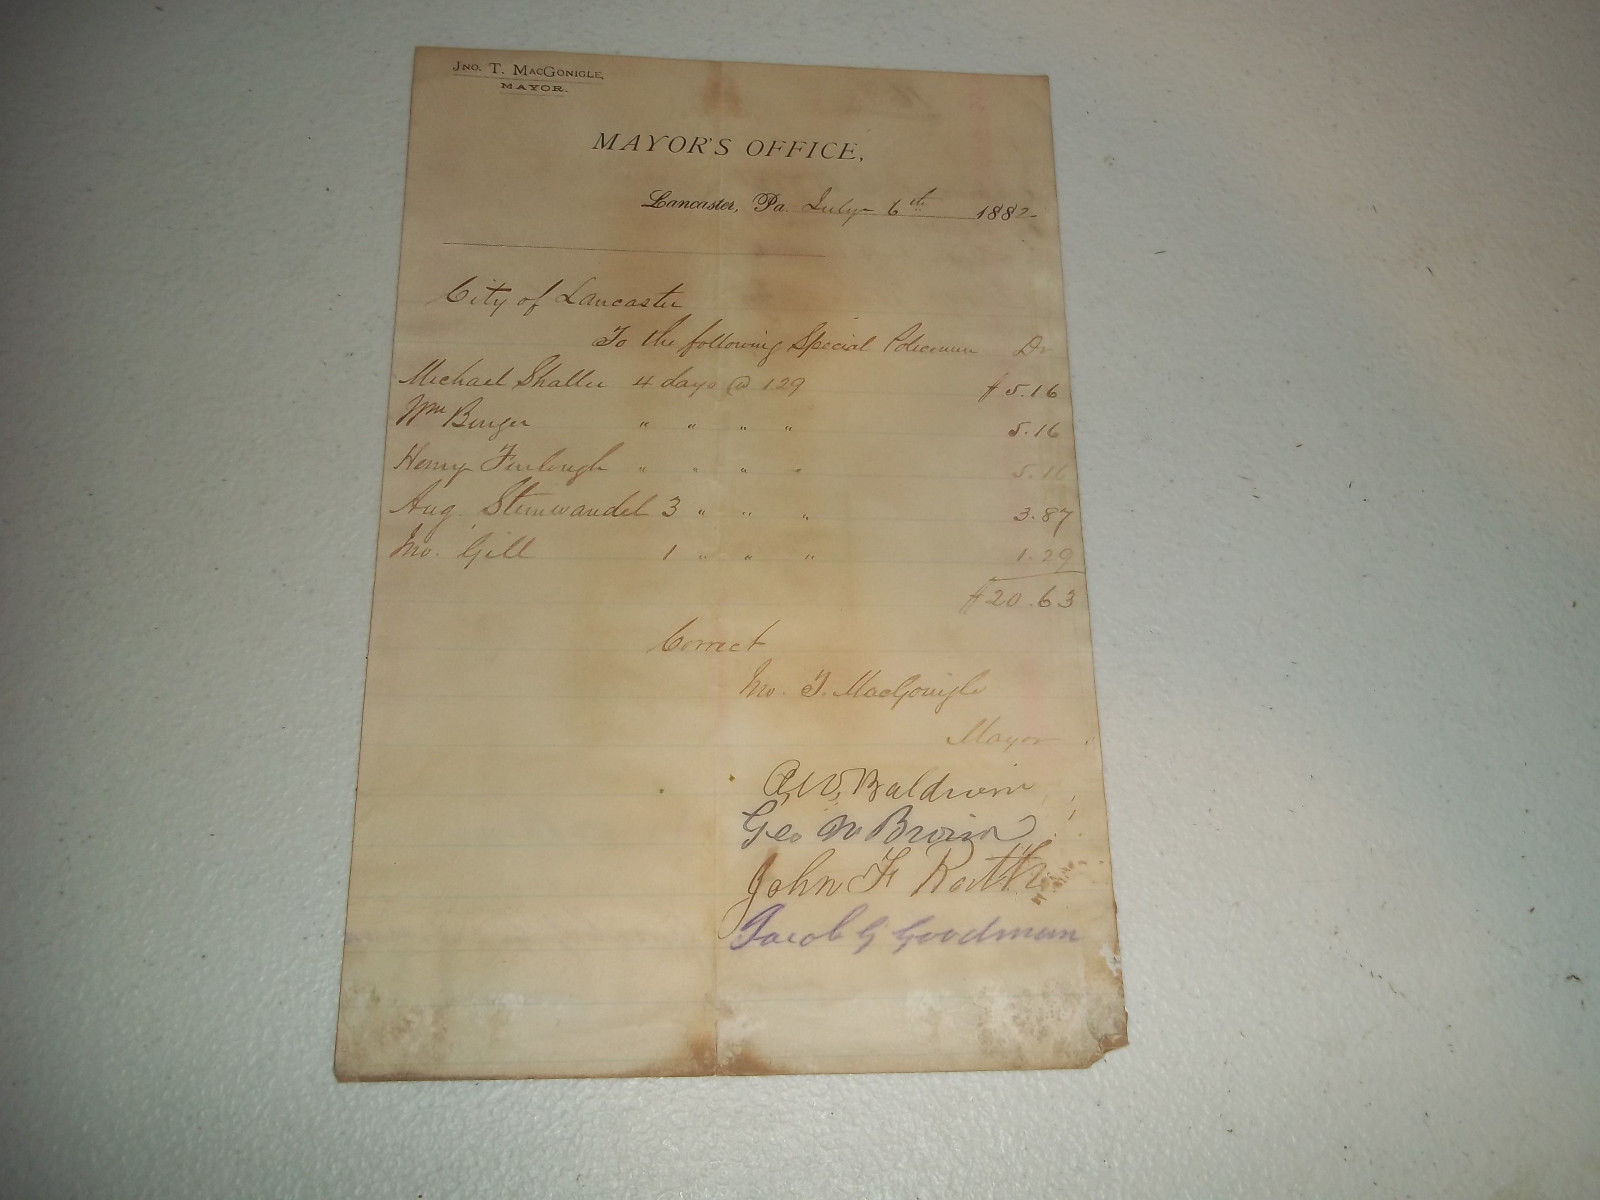 Jno. T. MacGonigle,
MAYOR.
MAYOR'S OFFICE,
Lancaster, Pa. July 6th 1882
City of Lancaster
To the following Special Policemen Dr
Michael Shaller 4 days @ 129 $5.16
Wm Benger " " " " 5.16
Henry Furlough " " " " 5.16
Aug Steinwandel 3 " " " 3.87
Jno. Gill 1 " " " 1.29
$20.63
Correct
Jno. T. MacGonigle
Mayor
Baldwin
Geo W Brown
John F
Jacob G Goodman